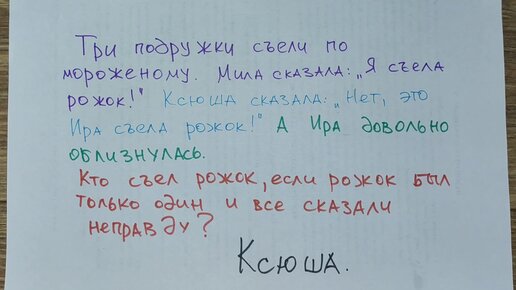 Три подружки съели по
мороженому. Мила сказала: „Я съела
рожок!" Ксюша сказала: „Нет, это
Ира съела рожок!" А Ира довольно
облизнулась.
Кто съел рожок, если рожок был
только один и все сказали
неправду?
Ксюша.